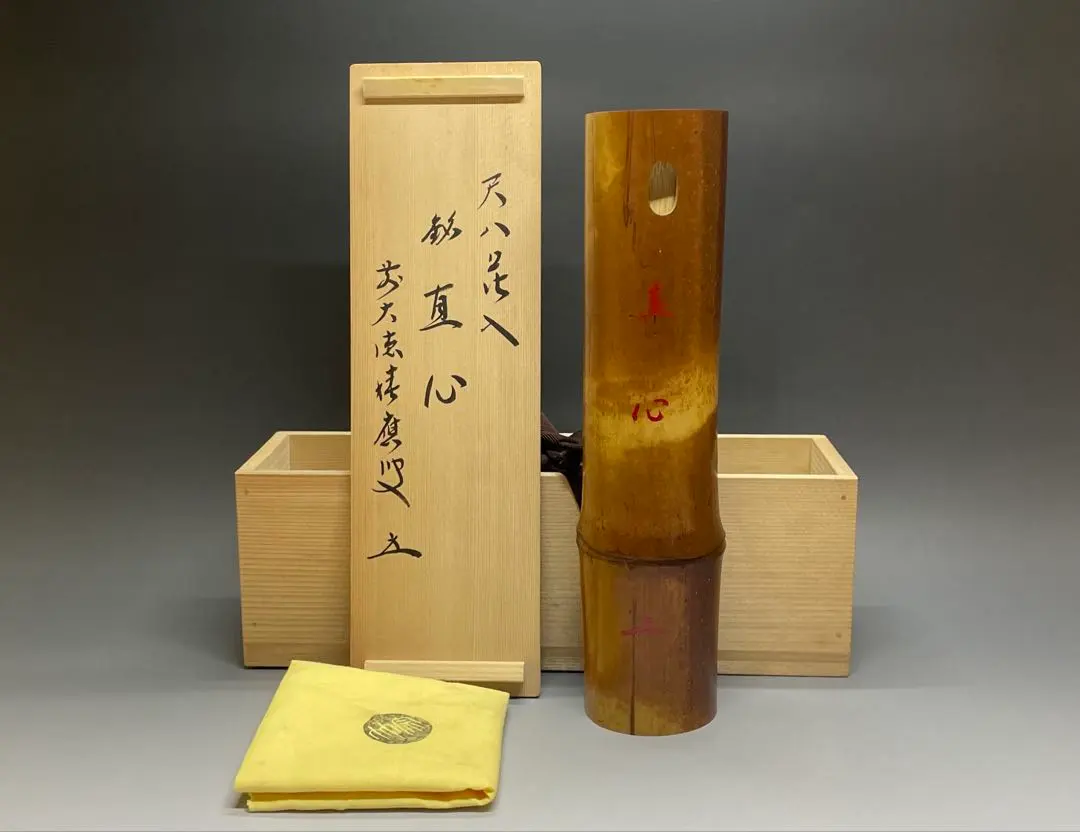 尺八花入
銘 直心
前大徳積應叟
直心